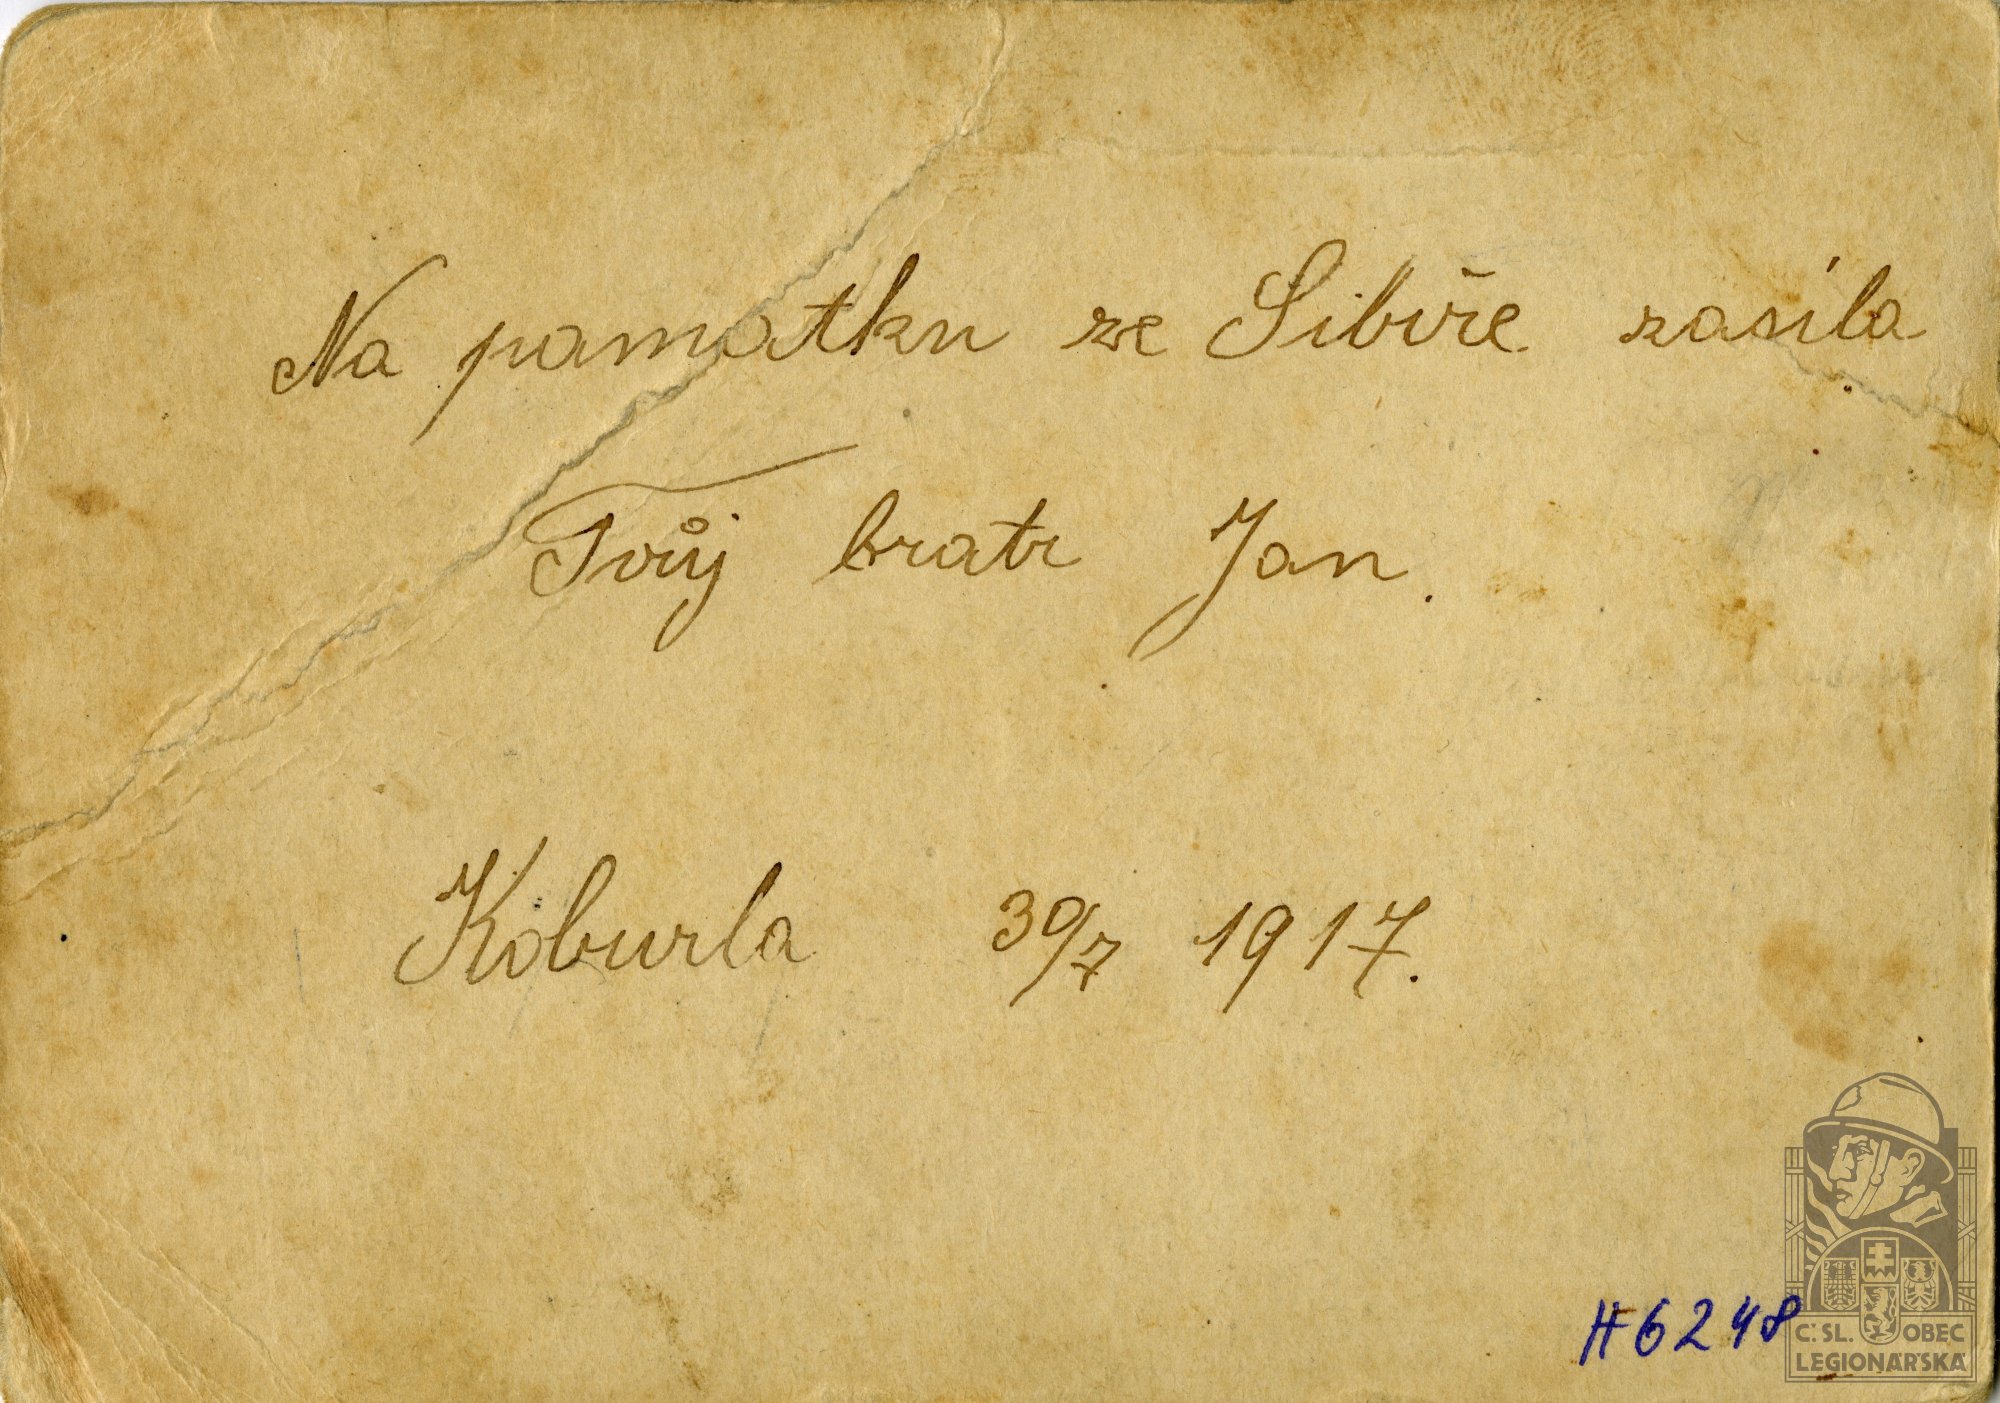 Na pamatku ze Sibiře zasíla
Tvůj bratr Jan.
Koburla 30/7 1917.
H6248
C.SL. OBEC
LEGIONÁŘSKÁ